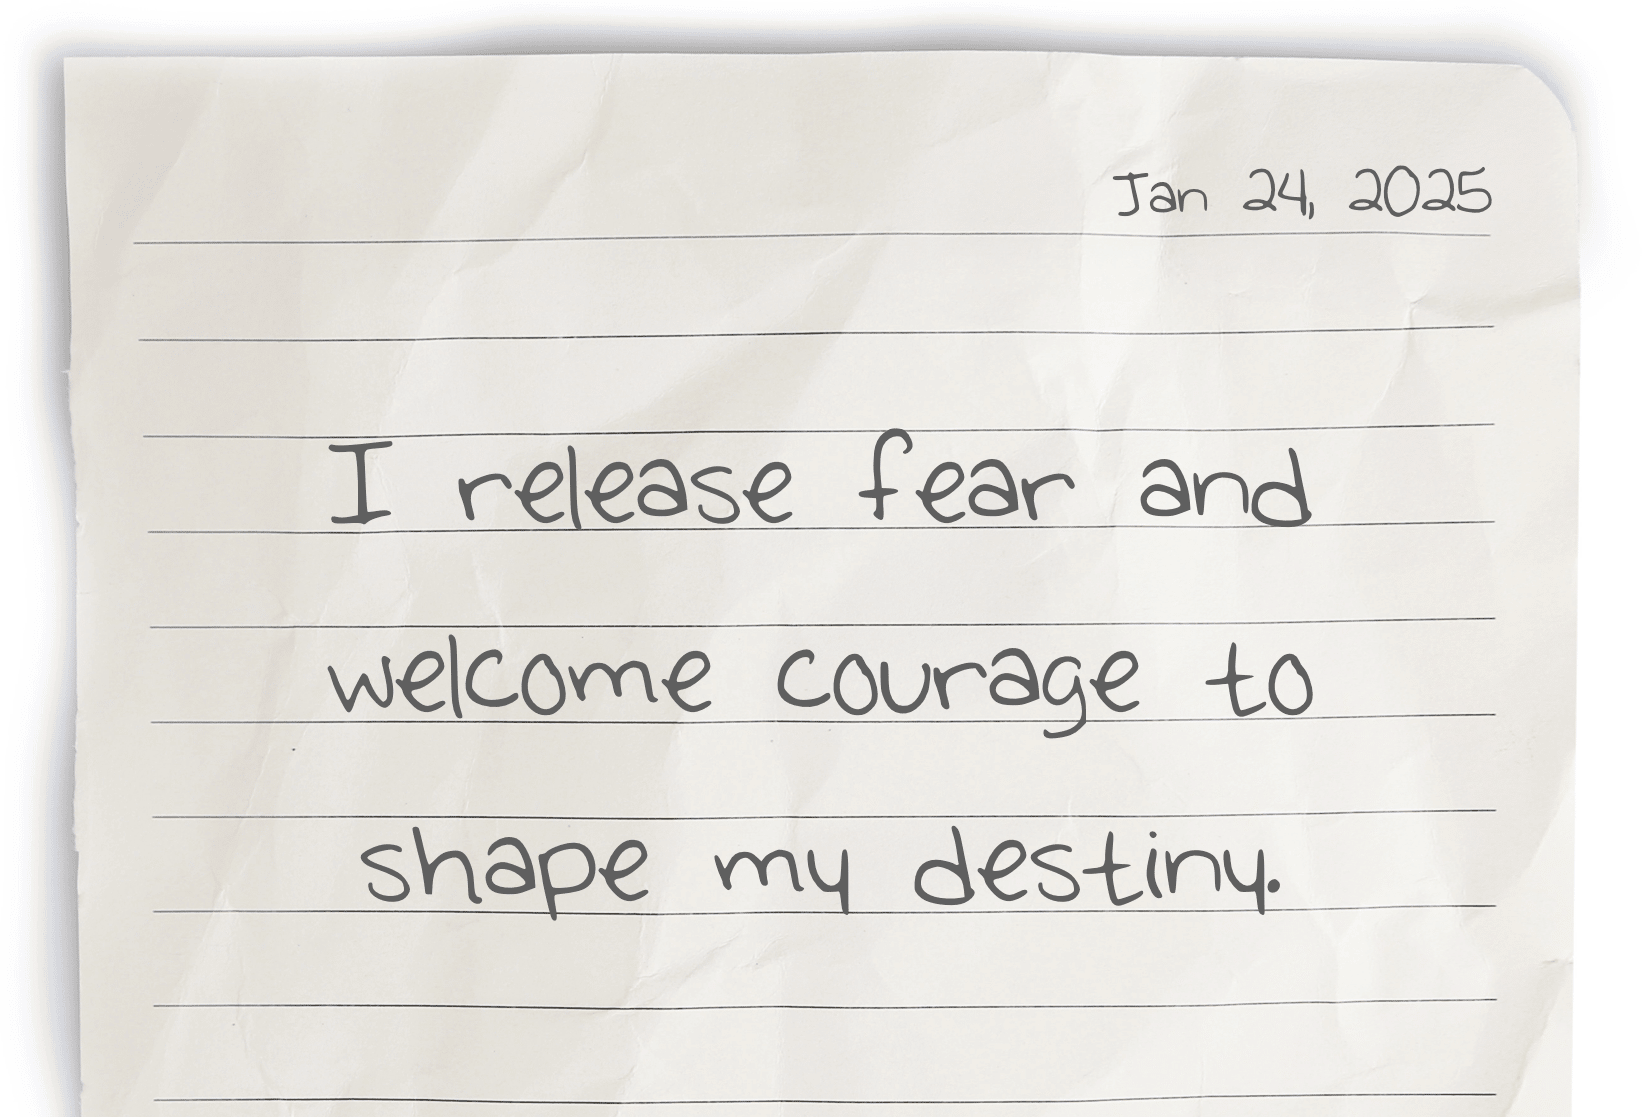 Jan 24, 2025
I release fear and
welcome courage to
shape my destiny.